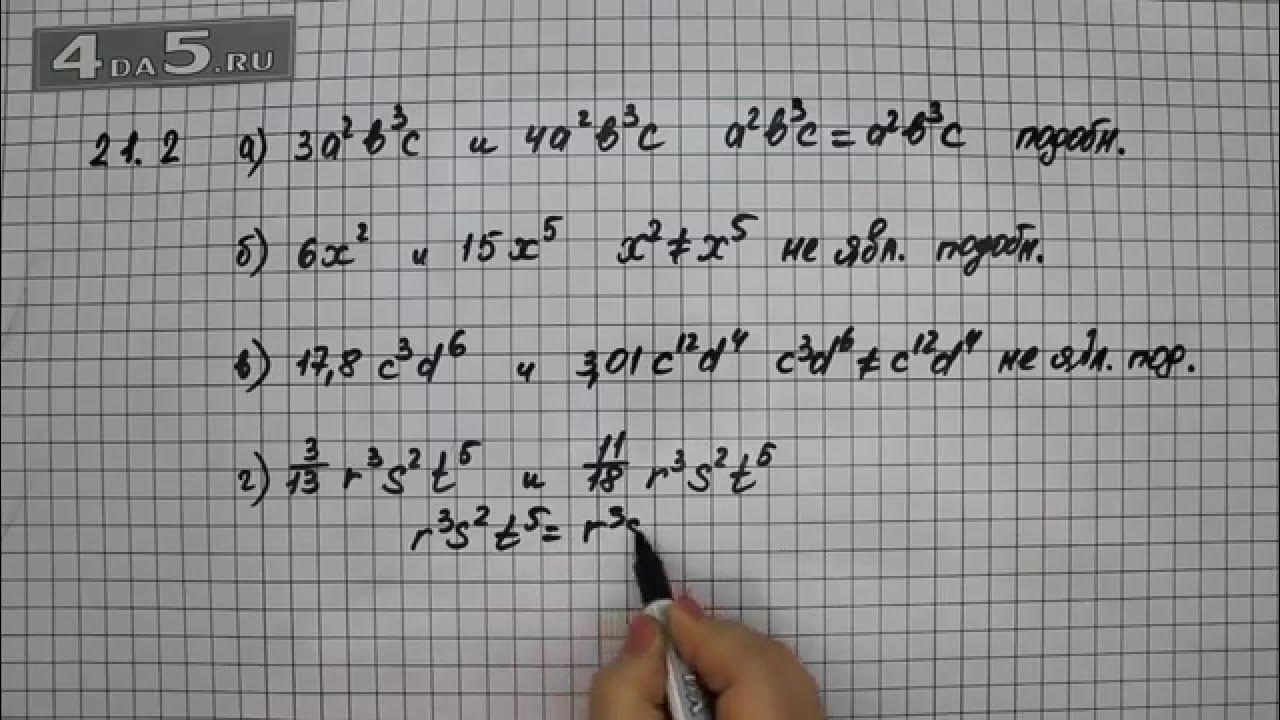 4DA5.RU
21.2 а) 3a²b³c и 4a²b³c a²b³c = a²b³c подобн.
б) 6x² и 15x⁵ x² ≠ x⁵ не явл. подобн.
в) 17,8 c³d⁶ и 3,01 c¹²d⁴ c³d⁶ ≠ c¹²d⁴ не явл. под.
г) 3/13 r³s²t⁵ и 11/18 r³s²t⁵
r³s²t⁵ = r³s